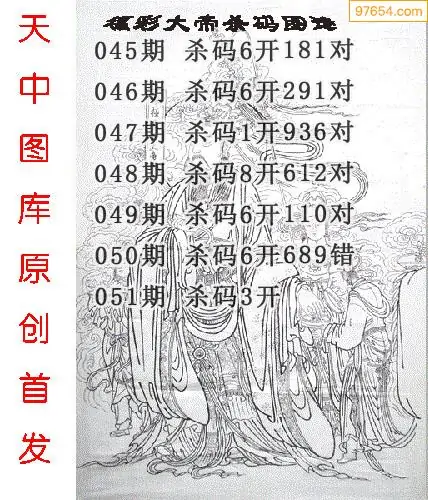 97654.com
福彩大帝杀码图谜
045期 杀码6开181对
046期 杀码6开291对
047期 杀码1开936对
048期 杀码8开612对
049期 杀码6开110对
050期 杀码6开689错
051期 杀码3开
天中图库原创首发